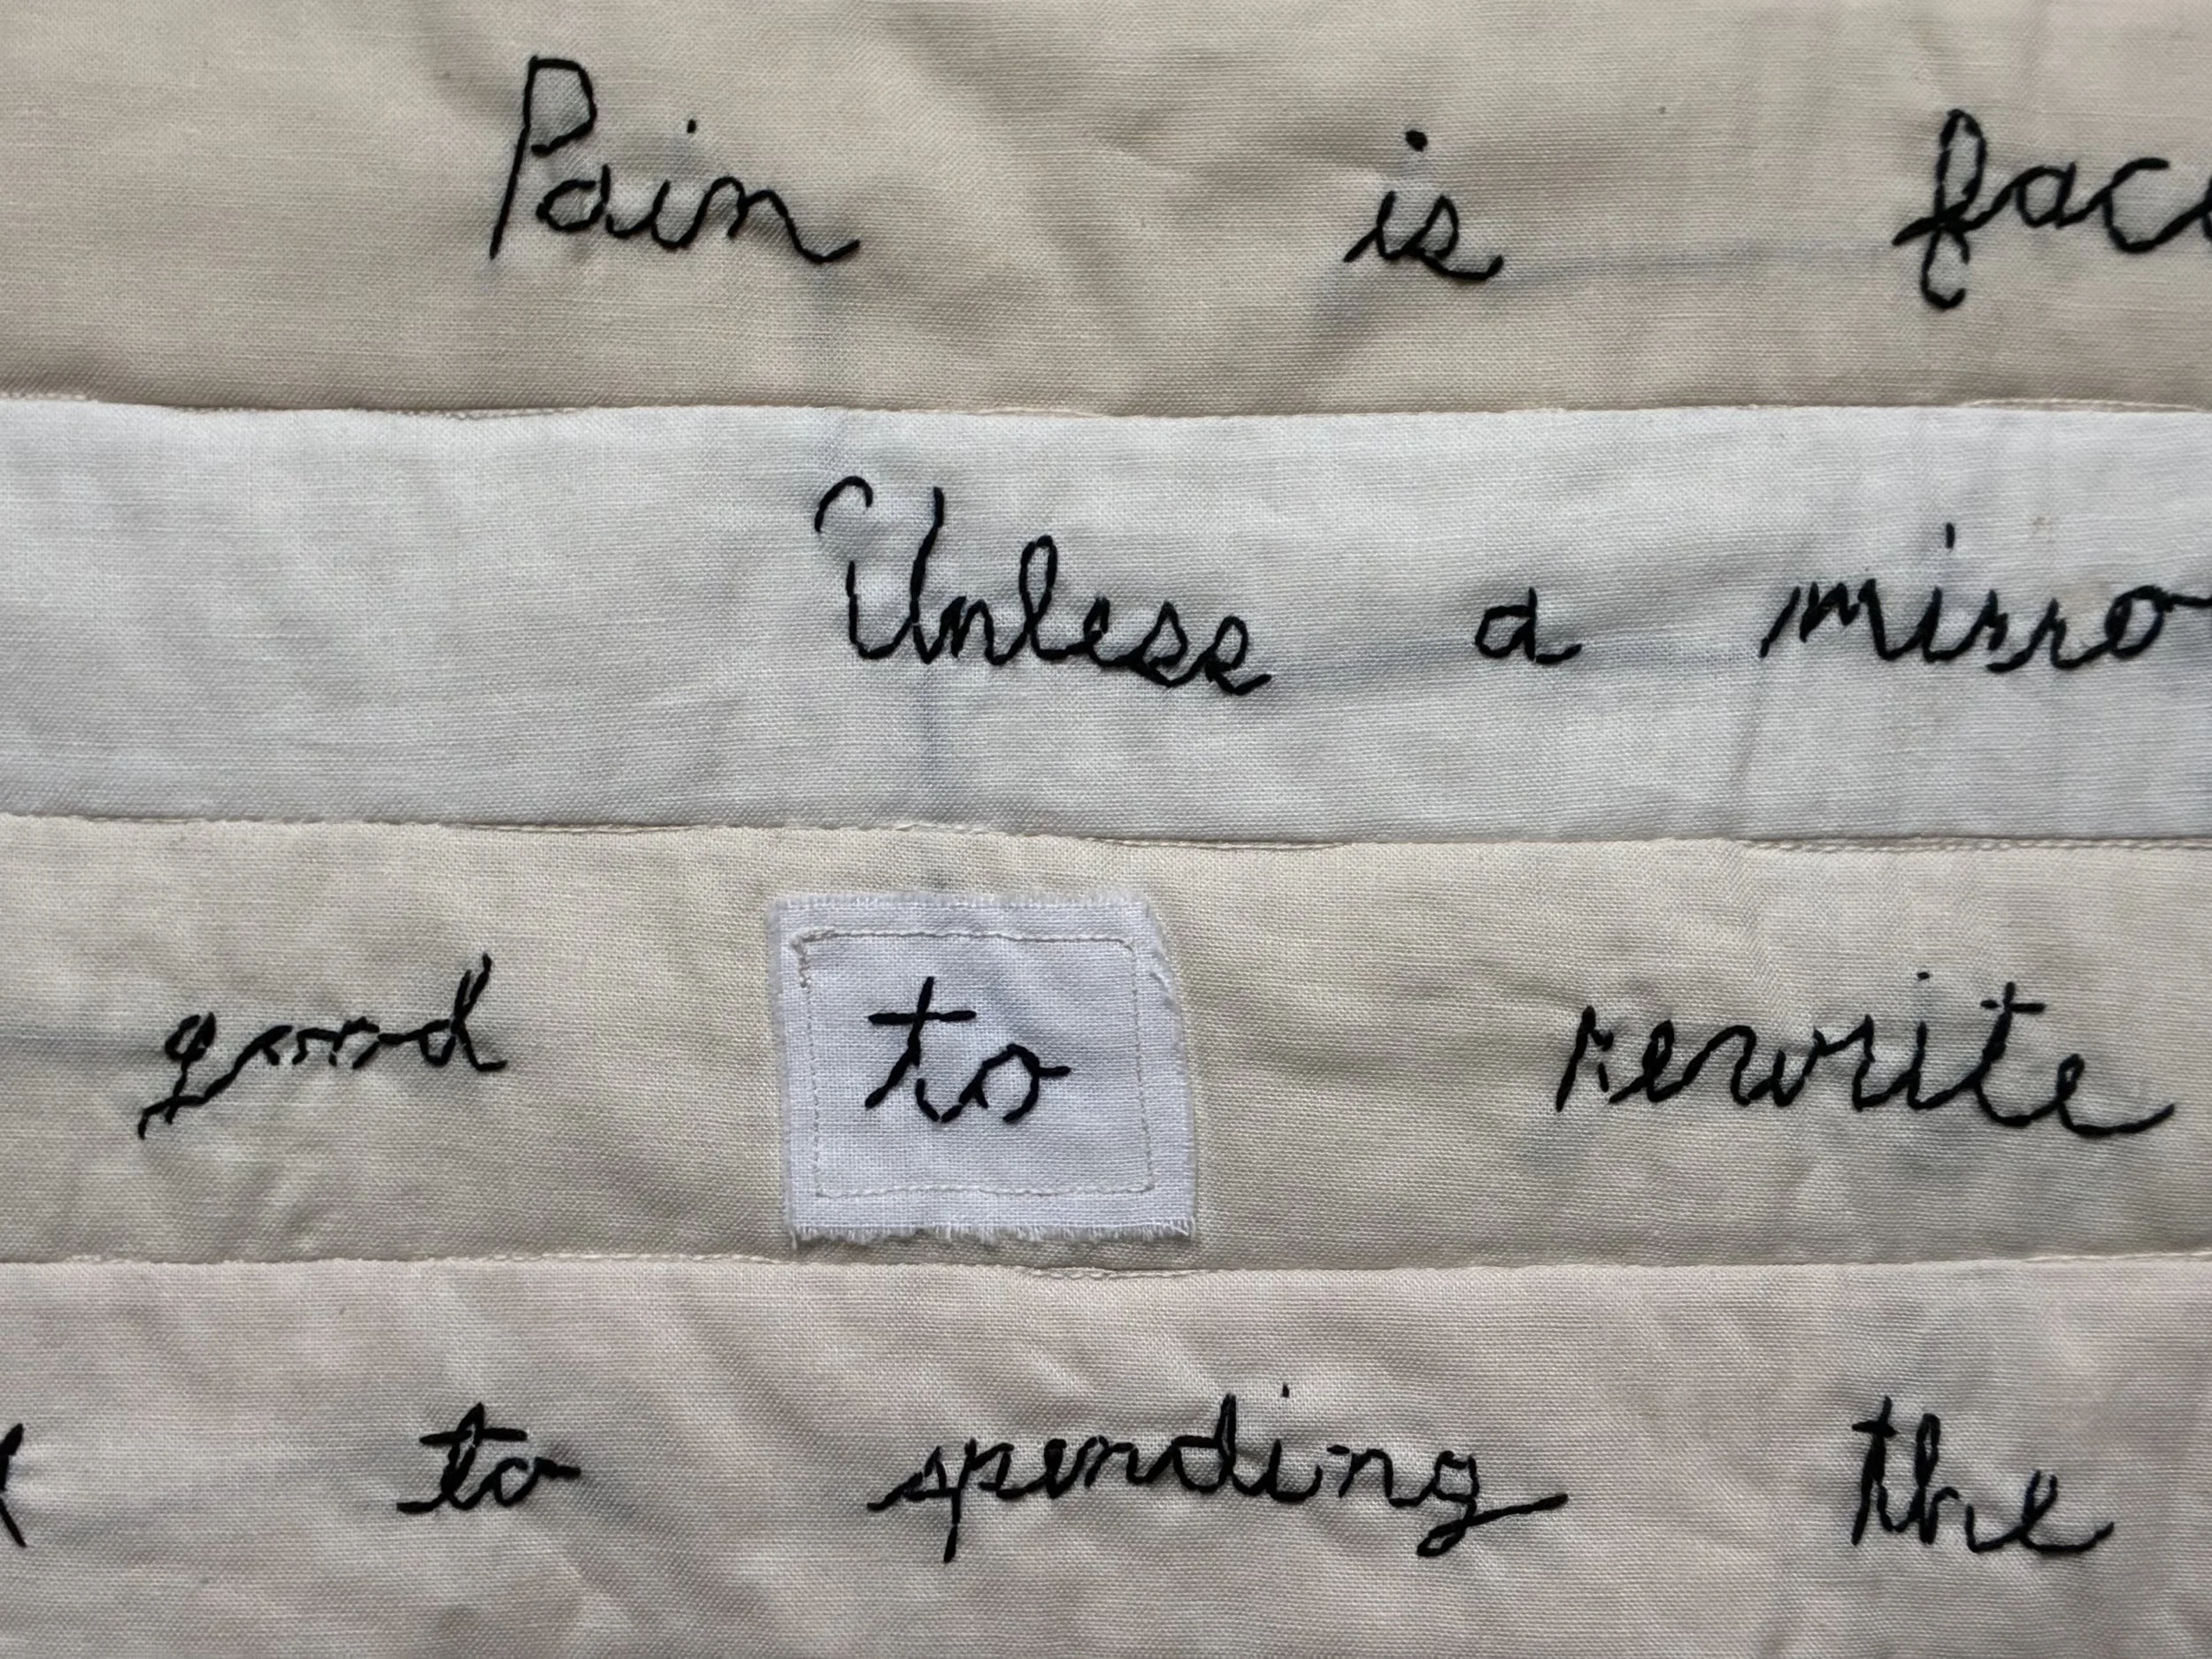 Pain is fac
Unless a mirro
good to rewrite
to spending the